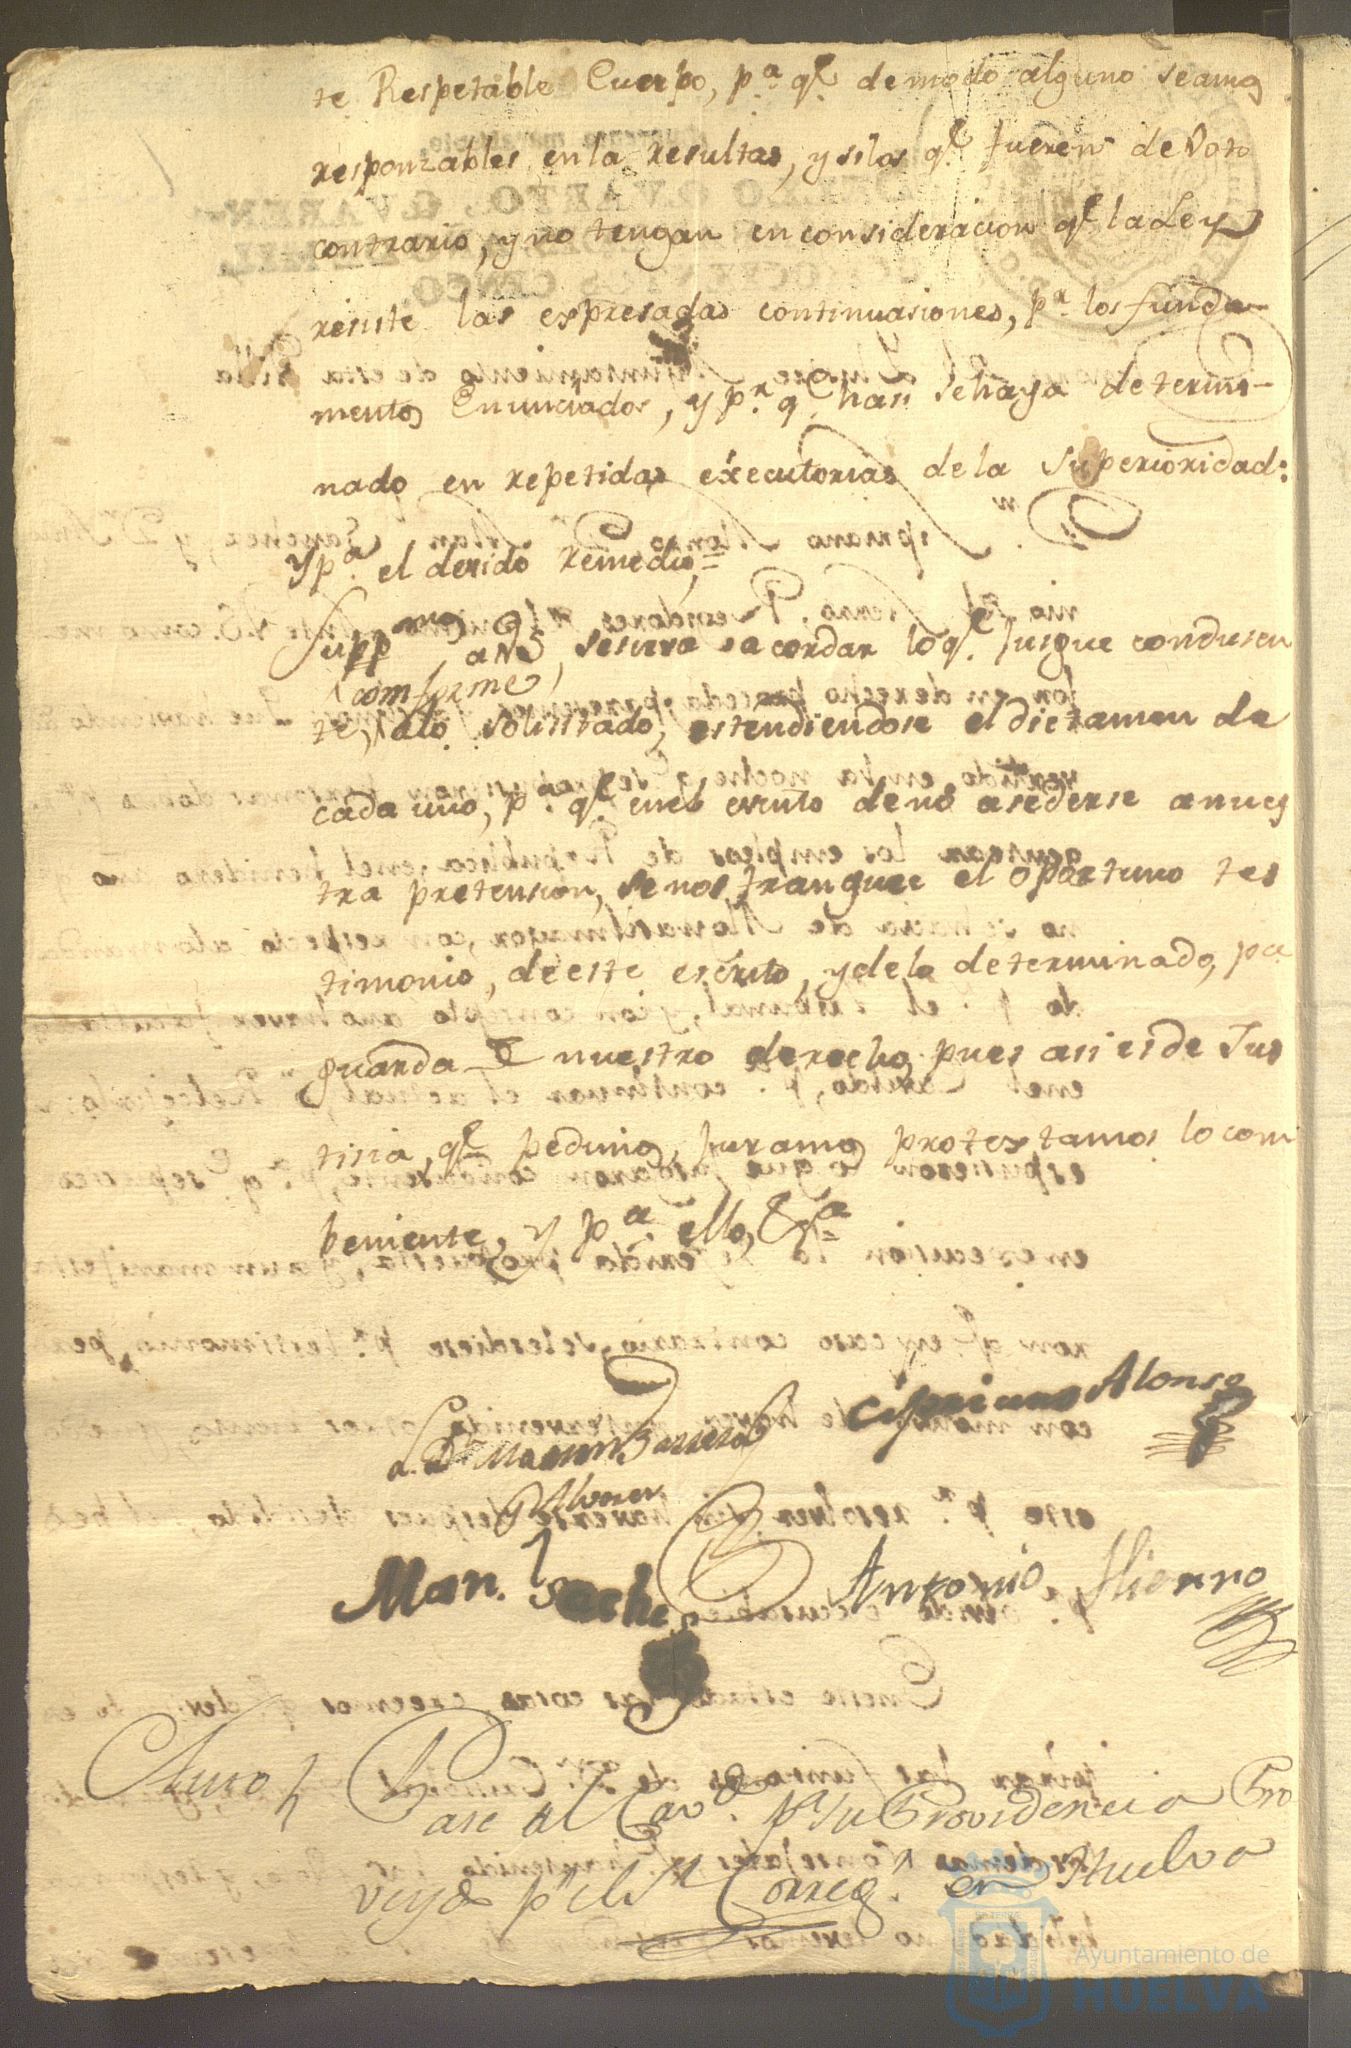 te Respetable Cuerpo, p.ª q.e de modo alguno seamos
responzables en la resultas, y si los q.e fueren de Voto
contrario, y no tengan en consideracion q.e la Ley
resiste las expresadas continuasiones, p.ª los funda-
mentos Enunciados, y p.r q.e hasi se haya determi-
nado en repetidas executorias de la Superioridad:
Y p.ª el devido remedio=
Supp.mos a VS, se sirva acordar lo q.e Jusgue condusen
(comforme)
te, alo solisitado, estendiendose el dictamen de
cada uno, p.ª q.e en el evento de no asederse a nues
tra pretension, se nos franquee el oportuno tes
timonio, de este escrito, y de lo determinado, pª
guarda de nuestro derecho, pues asi es de Jus
tisia, q.e pedimos, juramos protextamos lo com
beniente, y p.ª ello, &.ª
Cipriano Alonso
Man.l Sanche
Antonio Hierro
Auto
Pase al Cav.do p.ª su Providencia Pro
veydo p.r el S.r Correg.r en Huelva
Ayuntamiento de
HUELVA